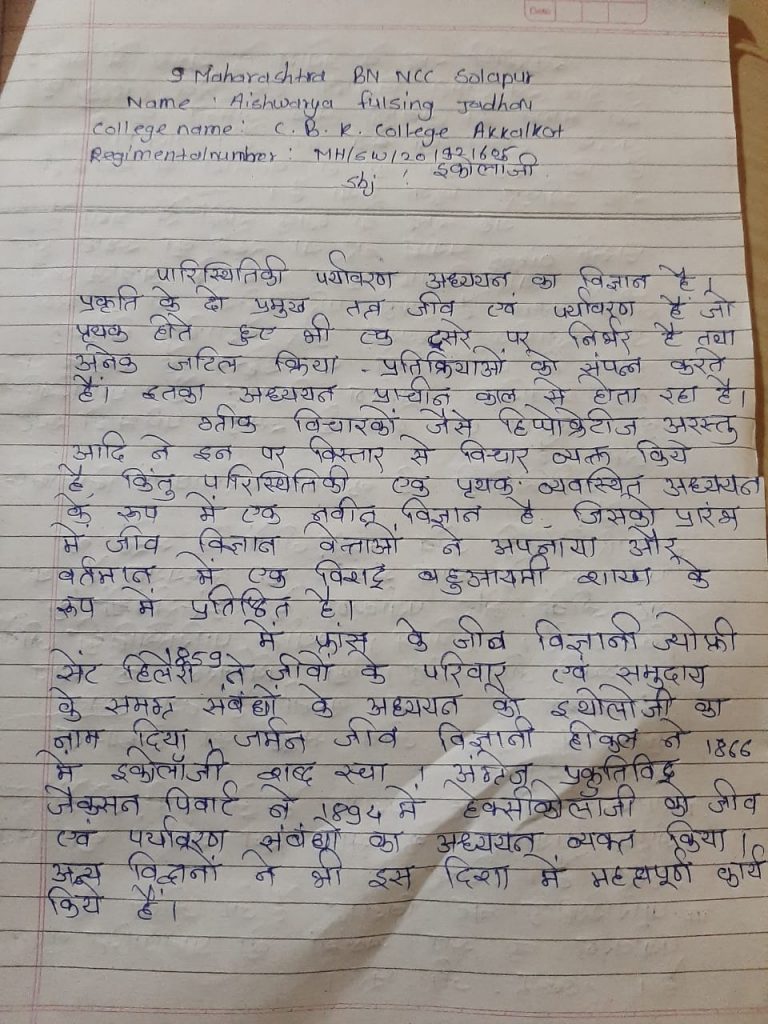 9 Maharashtra BN NCC Solapur
Name : Aishwarya fulsing Jadhav
College name : C. B. K. College Akkalkot
Regimentalnumber : MH/SW/20/921605
Sbj : इकोलाजी
पारिस्थितिकी पर्यावरण अध्ययन का विज्ञान है।
प्रकृति के दो प्रमुख तत्व जीव एवं पर्यावरण हैं जो
प्रथक होते हुए भी एक दूसरे पर निर्भर है तथा
अनेक जटिल क्रिया - प्रतिक्रियाओं को संपन्न करते
हैं। इतका अध्ययन प्राचीन काल से होता रहा है।
ग्रीक विचारकों जैसे हिप्पोक्रेटीज अरस्तु
आदि ने इन पर विस्तार से विचार व्यक्त किये
है किंतु पारिस्थितिकी एक पृथक व्यवस्थित अध्ययन
के रूप में एक नवीन विज्ञान है जिसको प्रारंभ
में जीव विज्ञान वेत्ताओं ने अपनाया और
वर्तमान में एक विशद बहुआयमी शाखा के
रूप में प्रतिष्ठित है।
में फ्रांस के जीव विज्ञानी ज्योफ्री
सेंट हिलैरी 1859 ने जीवों के परिवार एवं समुदाय
के समग्र संबंधों के अध्ययन को इथोलोजी का
नाम दिया, जर्मन जीव विज्ञानी हीकल ने 1866
मे इकोलॉजी शब्द रचा। अंग्रेज प्रकृतिविद
जैकसन पिवार्ट ने 1894 में हेक्सीकोलाजी को जीव
एवं पर्यावरण संबंधों का अध्ययन व्यक्त किया।
अन्य विद्वानों ने भी इस दिशा में महत्वपूर्ण कार्य
किये हैं।